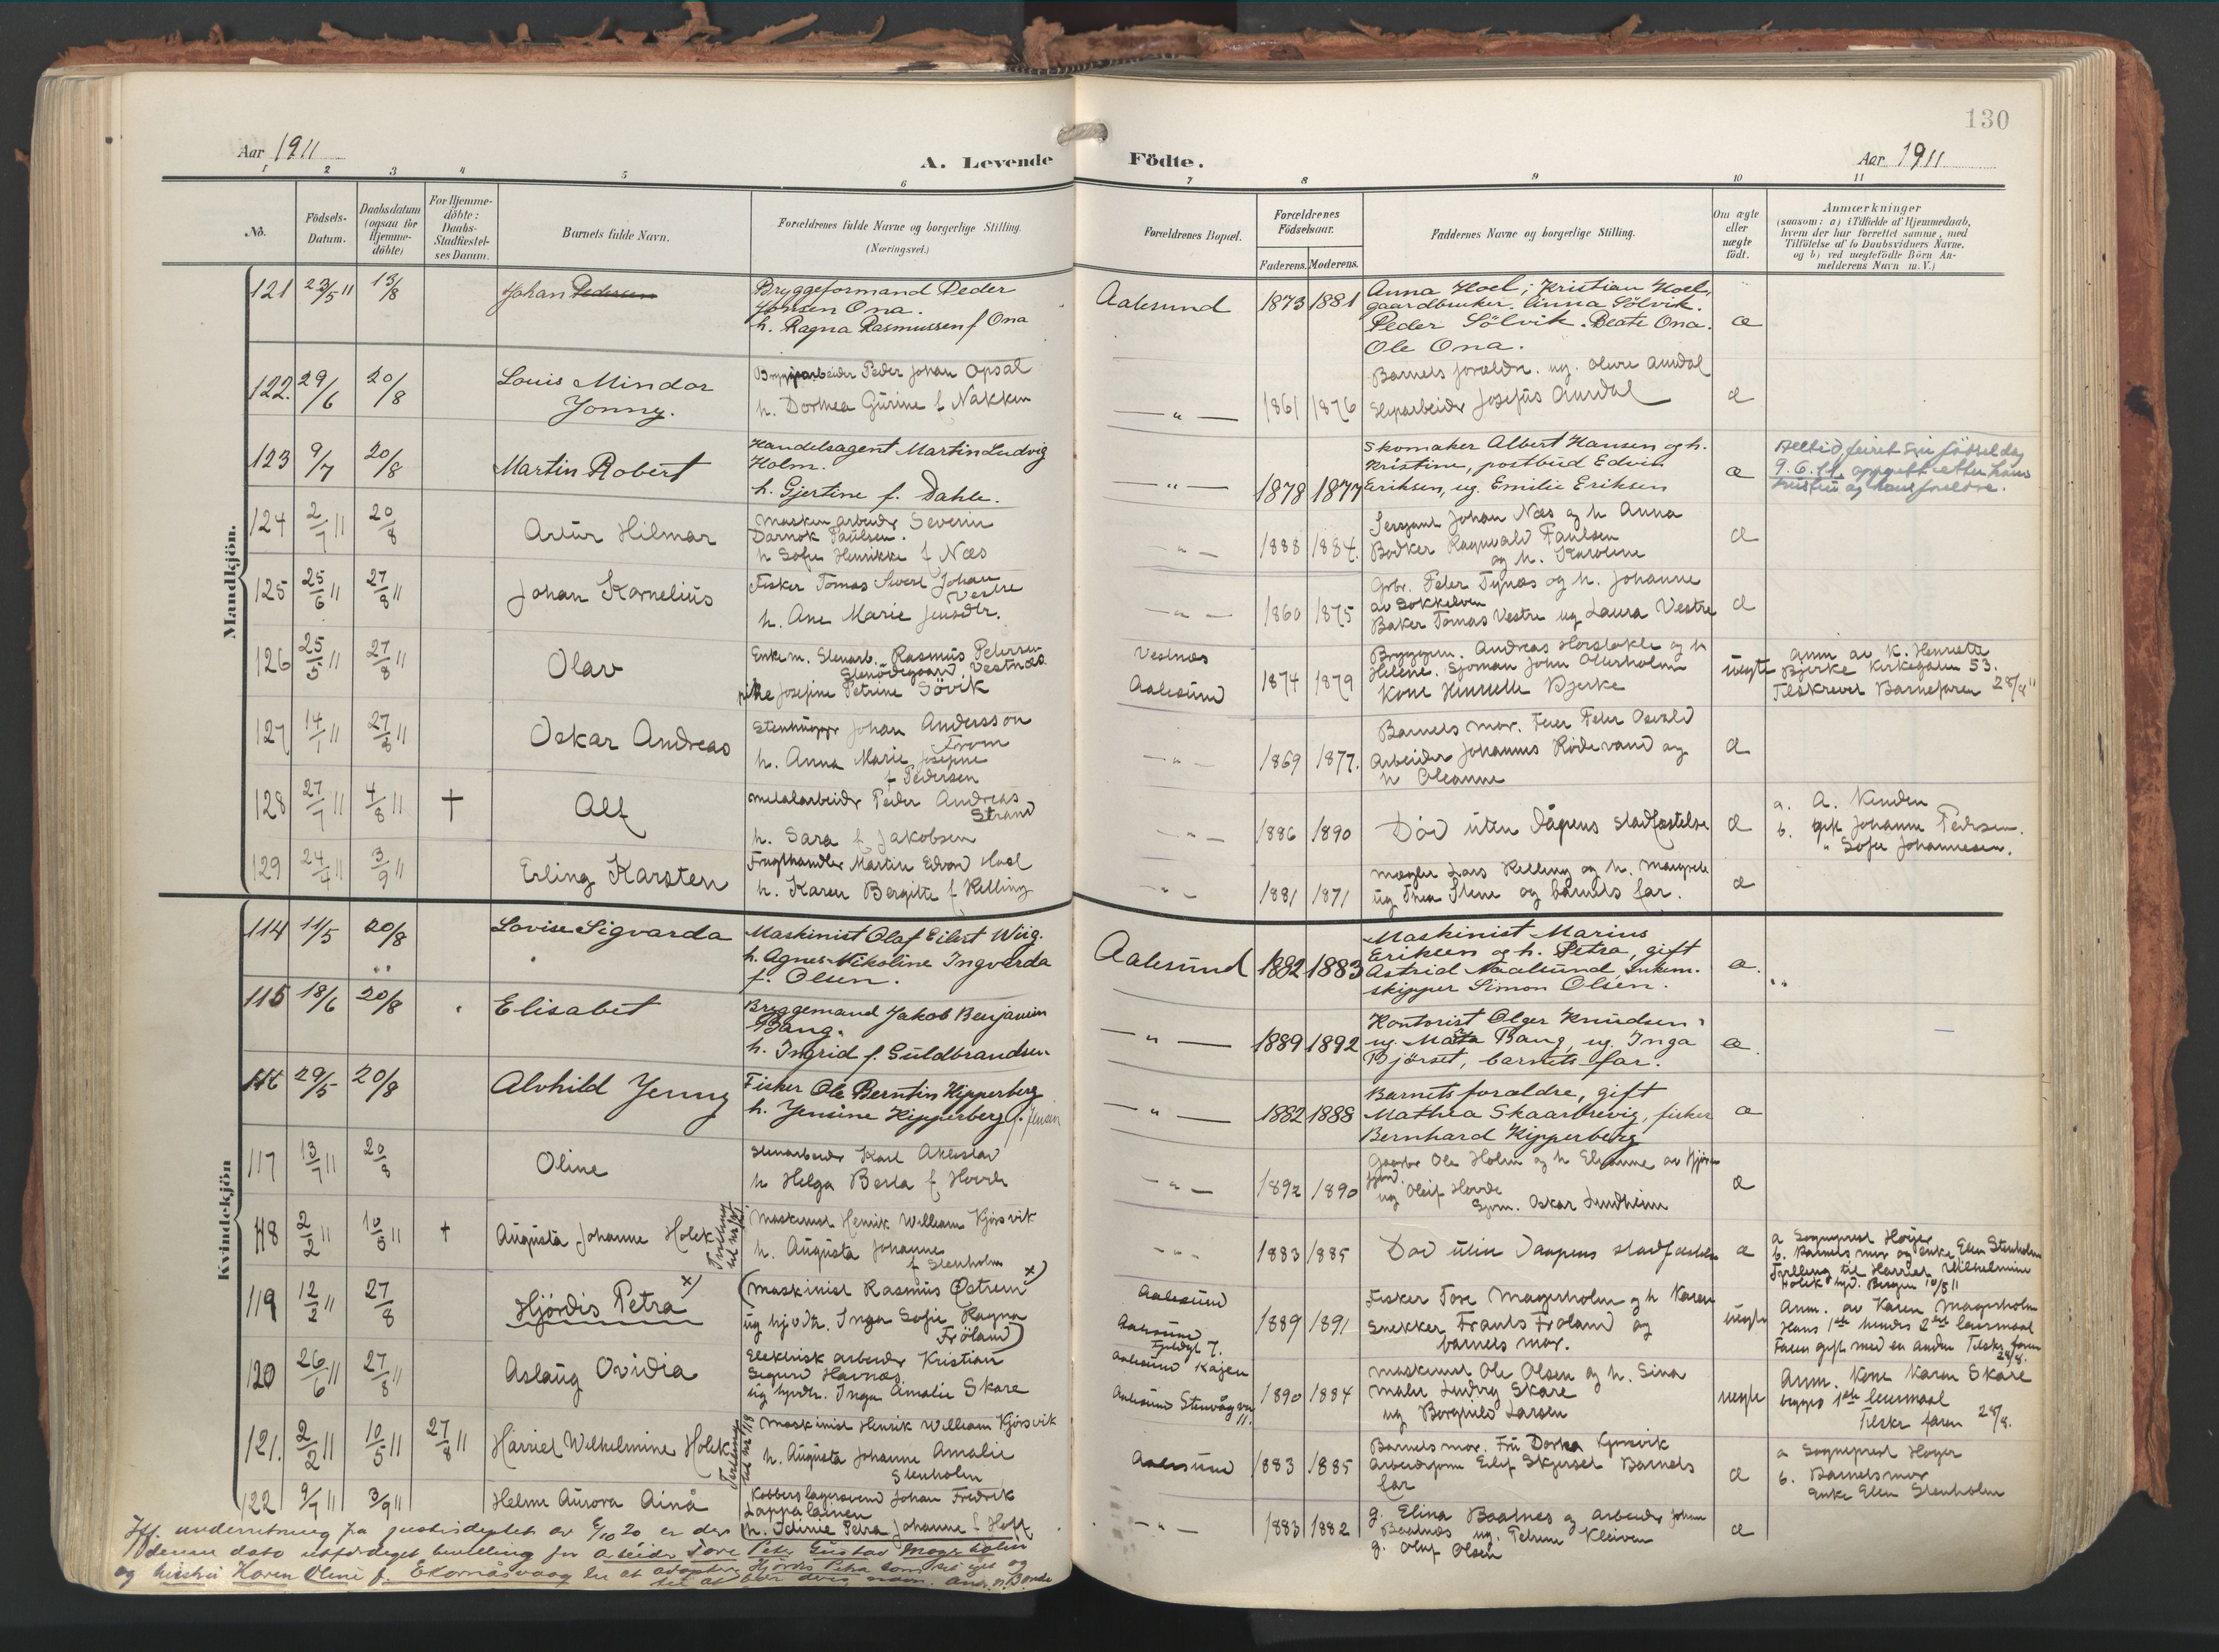 130
Aar 1911
A. Levende
Födte.
Aar 1911
1 2 3 4 5 6 7 8 9 10 11
No.
Födsels-
Datum.
Daabsdatum
(ogsaa for
Hjemme-
döbte)
For Hjemme-
döbte:
Daabs-
Stadfæstel-
ses Datum.
Barnets fulde Navn.
Forældrenes fulde Navne og borgerlige Stilling.
(Næringsvei.)
Forældrenes Bopæl.
Forældrenes
Födselsaar.
Faderens. Moderens.
Faddernes Navne og borgerlige Stilling.
Om ægte
eller
uægte
födt.
Anmærkninger
(saasom: a) i Tilfælde af Hjemmedaab,
hvem der har forrettet samme, med
Tilföielse af to Daabsvidners Navne.
og b) ved uægtefödte Börn An-
melderens Navn m. V.)
Mandkjön.
121 23/5 11 13/8 Johan Pedersen
Bryggeformand Peder
Johsen Ona.
h. Ragna Rasmussen f Ona
Aalesund 1873 1881
Anna Hoel; Kristian Hoel,
gaardbruker. Anna Sölvik.
Peder Sölvik. Beate Ona.
Ole Ona.
æ
122. 29/6 20/8 Louis Mindor
Jonny.
Bryggearbeider Peder Johan Opsal
h. Dorthea Gurine f Nakken
— " — 1861 1876
Barnets forældre. ug. Olivie Aurdal
Josefus Aurdal
æ
123 9/7 20/8 Martin Robert
Handelsagent Martin Ludvig
Holm.
h. Gjertine f. Dahle.
— " — 1878 1877
Skomaker Albert Hansen og h.
Kristine, postbud Edvin
Eriksen, ug. Emilie Eriksen
æ
Alltid feiret sin födselsdag
9.6.11.
124 2/7 11 20/8 Artur Hilmar
Maskinarbeider Severin
Darnok Paulsen.
h Sofie Henrikke f Næs
— " — 1888 1884.
Sersjant Johan Næs og h Anna
Bödker Ragnvald Paulsen
og h. Karoline
æ
125 25/6 11 27/8 11 Johan Kornelius
Fisker Tomas Sivert Johan
Vestre
h. Ane Marie Jensdtr.
— " — 1860 1875
Gbr. Peter Tynæs og h. Johanne
av Sokkelven
Baker Tomas Vestre ug Laura Vestre
æ
126 25/5 11 27/8 11 Olav
Enkem. Stenarb. Rasmus Petersen
Stenödegaard, Vestnæs
pike Josefine Petrine Sövik
Vestnæs
Aalesund
1874 1879
Andreas Horsløkle og h
Helene. Sjöman John Otterholm
Kone Henrette Bjerke
uegte
Anm av K. Henrette
Bjerke Kirkegaten 53.
Tilskrevet Barnefaren 28/8 11
127 14/1 11 27/8 11 Oskar Andreas
Stenhugger Johan Andersson
From
h. Anna Marie Josefine
f Pedersen
— " — 1869 1877.
Barnets mor.
Arbeider Johannes Rödevand og
h Oleanne
æ
128 27/7 11 4/8 11 + Alf
Metalarbeider Peder Andreas
Strand
h. Sara f Jakobsen
— " — 1886 1890
Död uten Dåpens stadfæstelse
æ
a. A. Vinden
b. gift Johanne Pedersen.
" Sofie Johannesen.
129 24/4 11 3/9 11 Erling Karsten
Frugthandler Martin Edvard Hoel
h. Karen Bergitte f Kelling
— " — 1881 1871
Mægler Lars Kelling og h. Margrete
ug Thea Stene og barnets far.
æ
Kvindekjön
114 11/5 20/8 Lovise Sigvarda
Maskinist Olaf Eilert Wiig.
h. Agnes Nikoline Ingvarda
f. Olsen.
Aalesund 1882 1883
Maskinist Marius
Eriksen og h. Petra, gift
Astrid Naalsund, enkem.
skipper Simon Olsen.
æ.
115 18/6 20/8 Elisabet
Bryggemand Jakob Benjamin
Bang.
h. Ingrid f. Guldbrandsen
— " — 1889 1892
Kontorist Olger Knudsen,
ug. Mata Bang, ug. Inga
Björset, barnets far.
æ.
116 29/5 20/8 Alvhild Jenny
Fisker Ole Berntin Kipperberg
h. Jensine Kipperberg f. Jensen
— " — 1882 1888
Barnets forældre, gift
Mathea Skaarbrevig, fisker
Bernhard Kipperberg
æ
117 13/7 11 20/8 Oline
Stenarbeider Karl Akselstad
h Helga Berta f Hovde
— " — 1892 1890
Gaardbr Ole Holm og h Elianne av Hjörund
fjord.
ug Oleif Hovde
Sjom. Oskar Lundheim
æ
118 2/2 11 10/5 11 + Augusta Johanne Holck
Tvilling til nr 121
Maskinist Henrik William Kjörsvik
h. Augusta Johanne
f Stenholm
— " — 1883 1885
Död uten Daapens stadfæstelse
æ
a Sogneprest Höyer
b. Barnets mor og enke Elen Stenholm
Tvilling til Harriet Wilhelmine
Holck 10/5 11
119 12/2 11 27/8 Hjördis Petra x)
(Maskinist Rasmus Østrem x)
ug hjvdtr. Inga Sofie Ragna
Fröland)
Aalesund
Aalesund
7.
1889 1891
Fisker Tore Magerholm og h Karen
Snekker Frants Fröland og
barnets mor.
uegte
Anm. av Karen Magerholm
Hans 1ste hendes 2det leiermaal
Faren gift med en anden Tilskr. faren
28/8.
120 26/6 11 27/8 11 Aslaug Ovidia
Elektrisk arbeider Kristian
Sigurd Havnæs
ug hjvdtr. Inga Amalie Skare
Aalesund Kajen
Aalesund Stenvågvn
11.
1890 1884
Maskinist Ole Olsen og h. Sina
Maler Ludvig Skare
ug Borghild Larsen
uegte
Anm. Kone Karen Skare
begges 1ste leiermaal
Tilskr faren 28/8.
121. 2/2 11 10/5 11 27/8 11 Harriet Wilhelmine Holck
Tvilling til nr 118
Maskinist Henrik William Kjörsvik
h. Augusta Johanne Amalie
Stenholm
Aalesund 1883 1885
Barnets mor. Fru Dorthea Kjörsvik
Arbeidsform Eilif Skjerset Barnets
far
æ
a Sogneprest Höyer
b. Barnets mor
Enke Elen Stenholm
122 9/7 11 3/9 11 Helmi Aurora Ainå
Kobberslagersvend Johan Fredrik
Lappalainen
h. Idine Petra Johanne f Hoff
— " — 1883 1882
g. Elina Baalnes og arbeider Johan
Baalnes ug. Petrine Kleiven
g. Oluf Olsen
æ
Iflf. underretning fra justisdeptet av 6/10 20 er der
denne dato utfærdiget bevilling for arbeider Tore Peter Gustav Magerholm
og hustru Karen Oline f. Ekornåsvaag til at adoptere Hjördis Petra som sit eget og
til at bære deres navn.